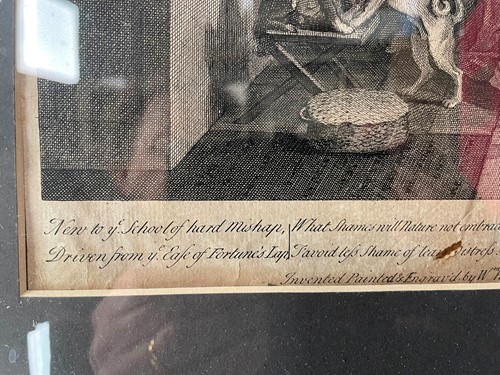 New to yᵉ School of hard Mishap, What Shames will Nature not embrac
Driven from yᵉ Ease of Fortune's Lap, T'avoid less Shame of
Invented Painted & Engrav'd by Wᵐ